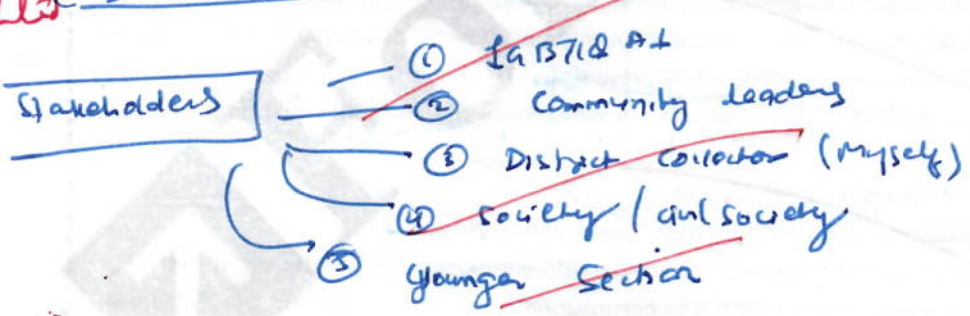 ① LGBTIQ A+
Stakeholders
② Community leaders
③ District Collector (Myself)
④ Society / civil society
⑤ Younger Section